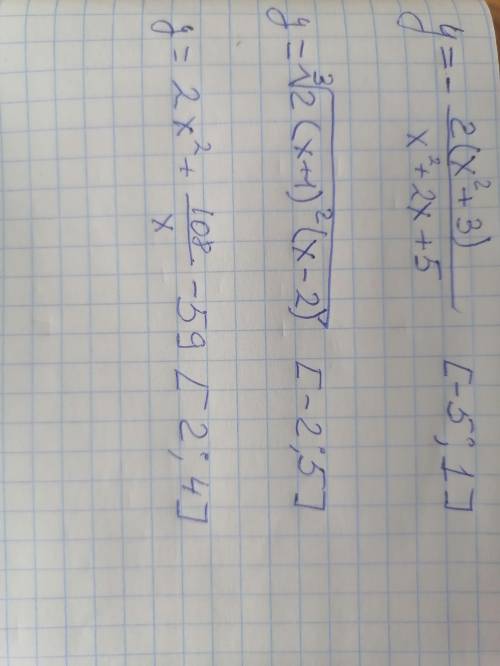 y = - 2(x² + 3) / x² + 2x + 5 [-5; 1]
y = ∛2(x+1)²(x-2) [-2; 5]
y = 2x² + 108/x - 59 [2; 4]